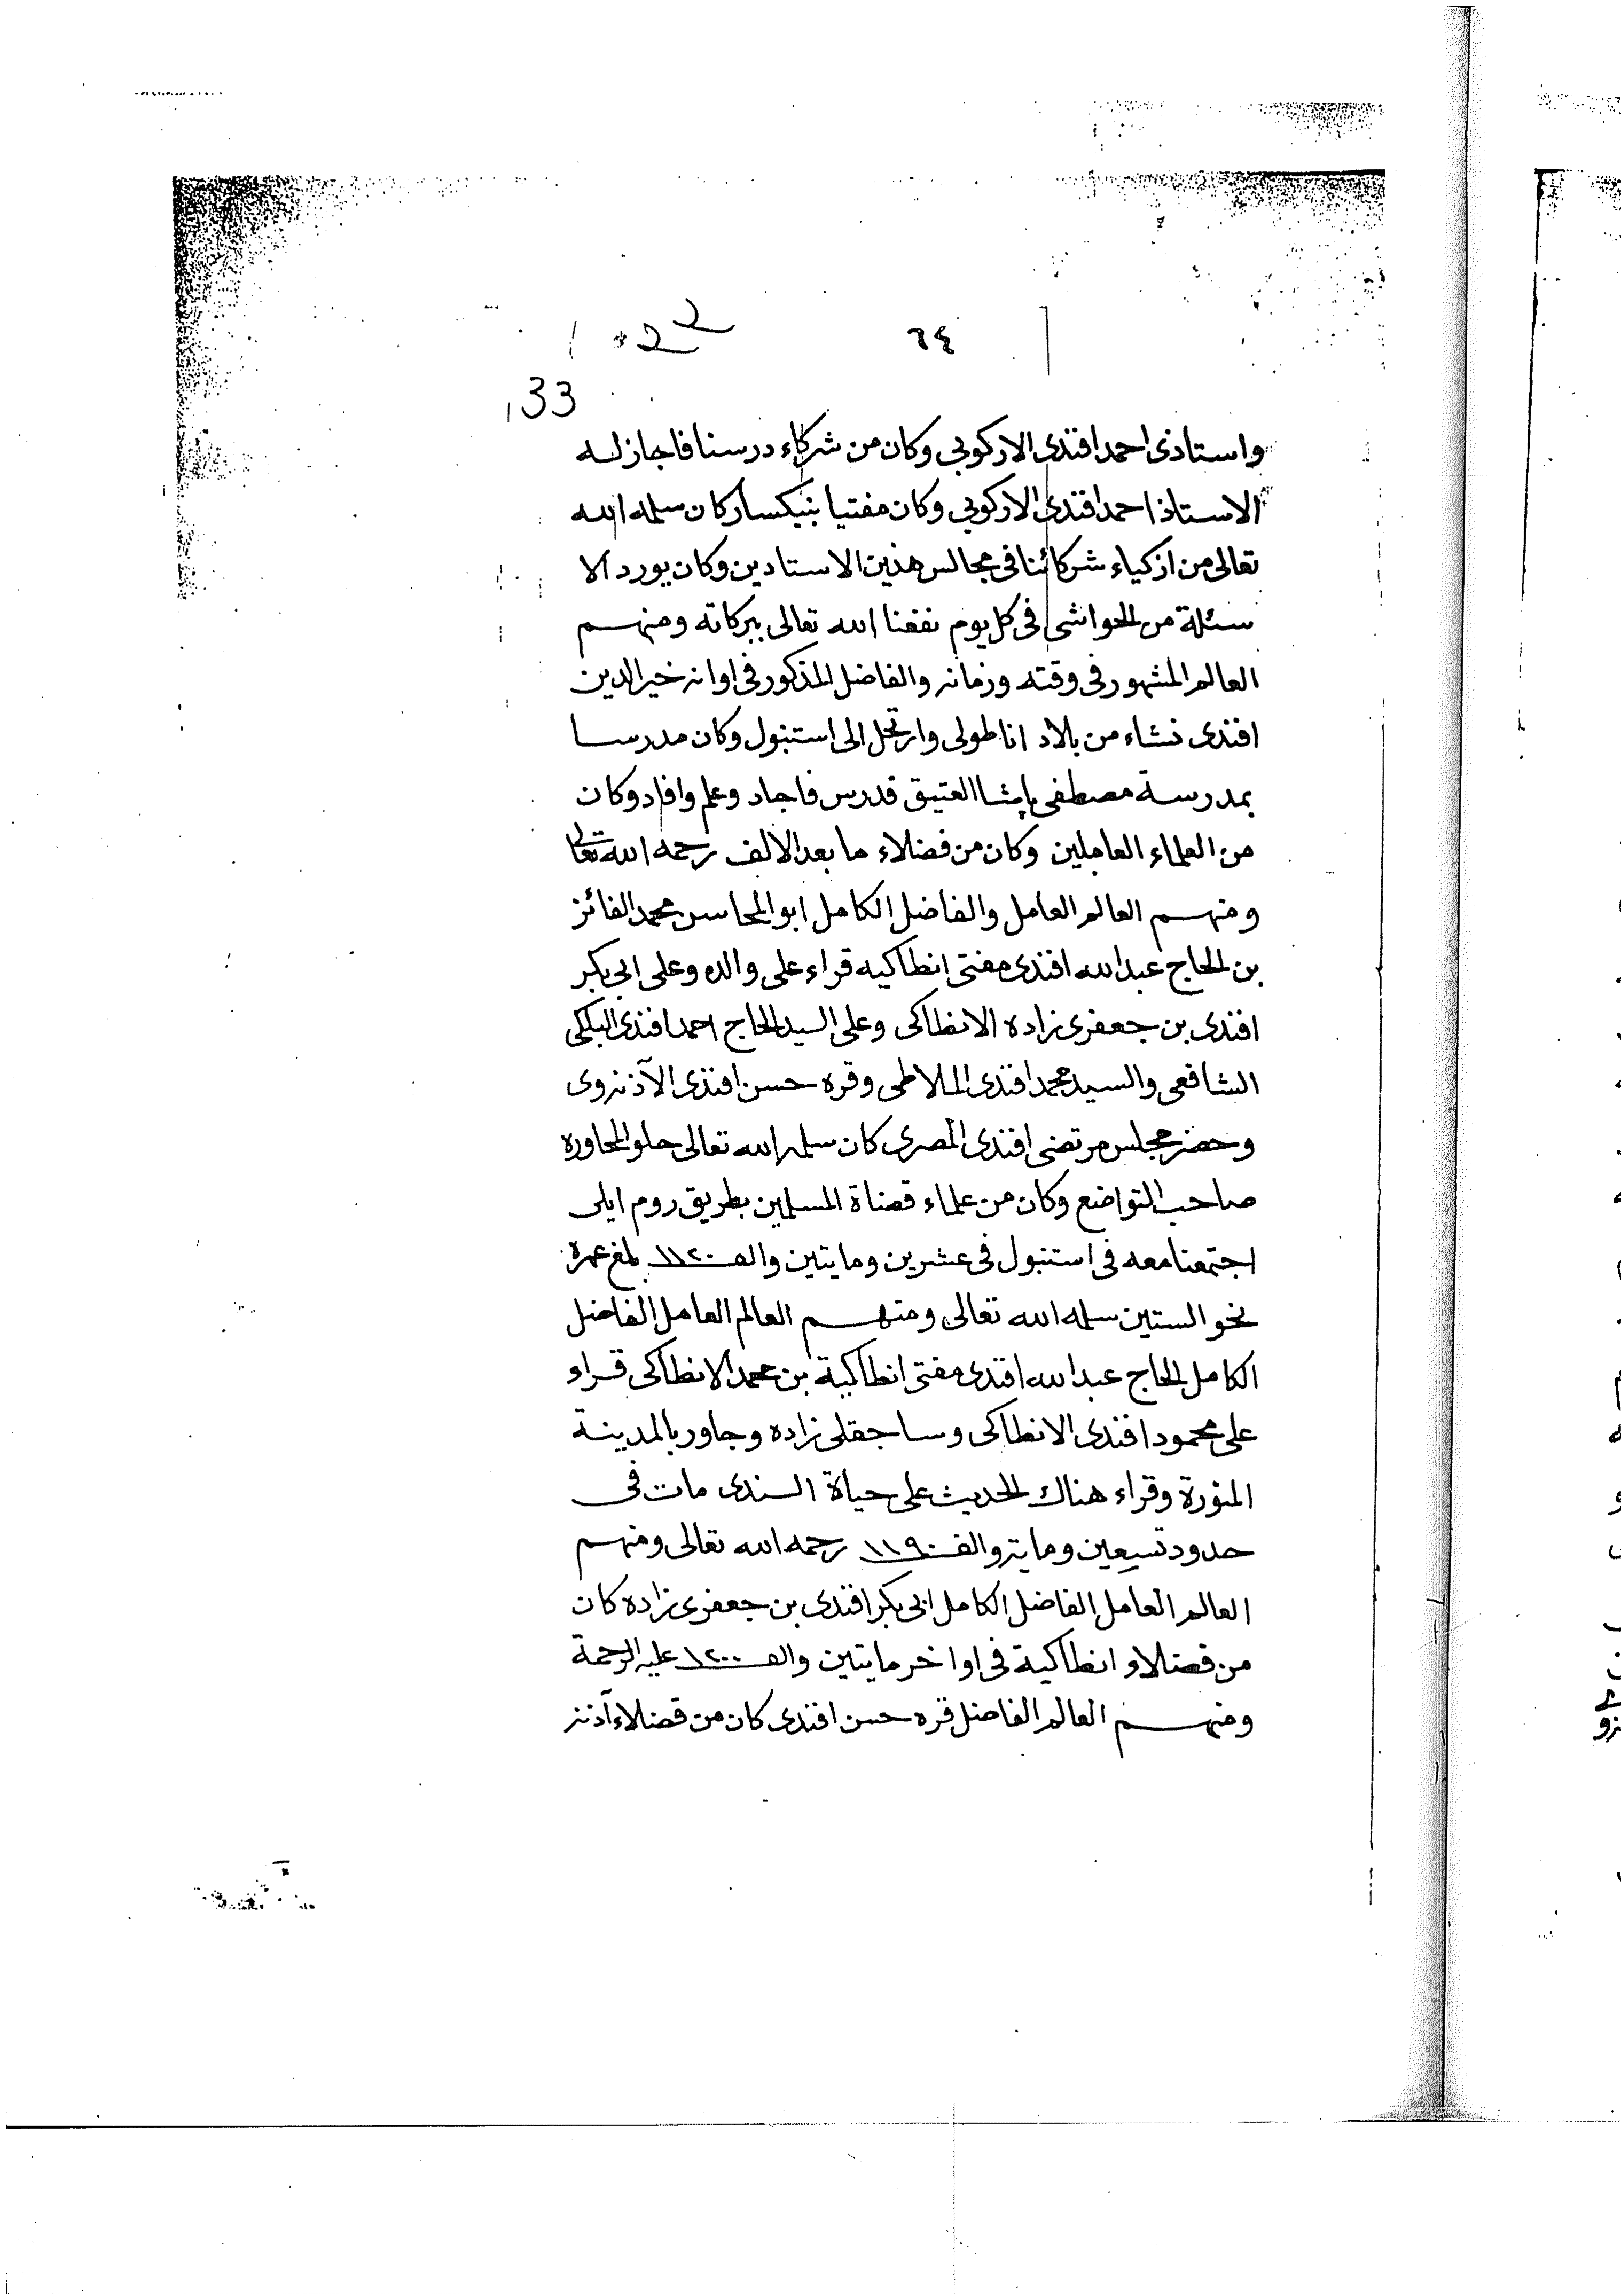 ٦٤
33
واستاذى احمد افندى الاركوبى وكان من شركاء درسنا فاجاز له
الاستاذ احمد افندى الاركوبى وكان مفتيا بنيكسار كان سلمه الله
تعالى من ازكياء شركائنا فى مجالس هذين الاستادين وكان يورد الا
سئلة من الحواشى فى كل يوم نفعنا الله تعالى ببركاته ومنهم
العالم المشهور فى وقته وزمانه والفاضل المذكور فى اوانه خير الدين
افندى نشاء من بلاد اناطولى وارتحل الى استنبول وكان مدرسا
بمدرسة مصطفى پاشا العتيق فدرس فاجاد وعلم وافاد وكان
من العلماء العاملين وكان من فضلاء ما بعد الالف رحمه الله تعالى
ومنهم العالم العامل والفاضل الكامل ابو المحاسن محمد الفائز
بن الحاج عبد الله افندى مفتى انطاكيه قراء على والده وعلى ابى بكر
افندى بن جعفرى زاده الانطاكى وعلى السيد الحاج احمد افندى
الشافعى والسيد محمد افندى الملاطى وقره حسن افندى الآذنزوى
وحضر مجلس مرتضى افندى المصرى كان سلمه الله تعالى حلو المحاوره
صاحب التواضع وكان من علماء قضاة المسلمين بطريق روم ايلى
اجتمعنا معه فى استنبول فى عشرين ومايتين والف ١١٢٠ بلغ عمره
نحو الستين سلمه الله تعالى ومنهم العالم العامل الفاضل
الكامل الحاج عبد الله افندى مفتى انطاكية بن محمد الانطاكى قراء
على محمود افندى الانطاكى وساجقلى زاده وجاور بالمدينة
المنورة وقراء هناك الحديث على حياة السندى مات فى
حدود تسعين ومايه والف ١١٩٠ رحمه الله تعالى ومنهم
العالم العامل الفاضل الكامل ابى بكر افندى بن جعفرى زاده كان
من فضلاء انطاكية فى اواخر مايتين والف ١٢٠٠ عليه الرحمة
ومنهم العالم الفاضل قره حسن افندى كان من فضلاء آذنز